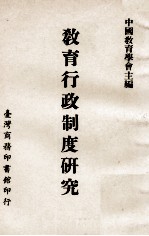 中國教育學會主編
教育行政制度研究
臺灣商務印書館印行